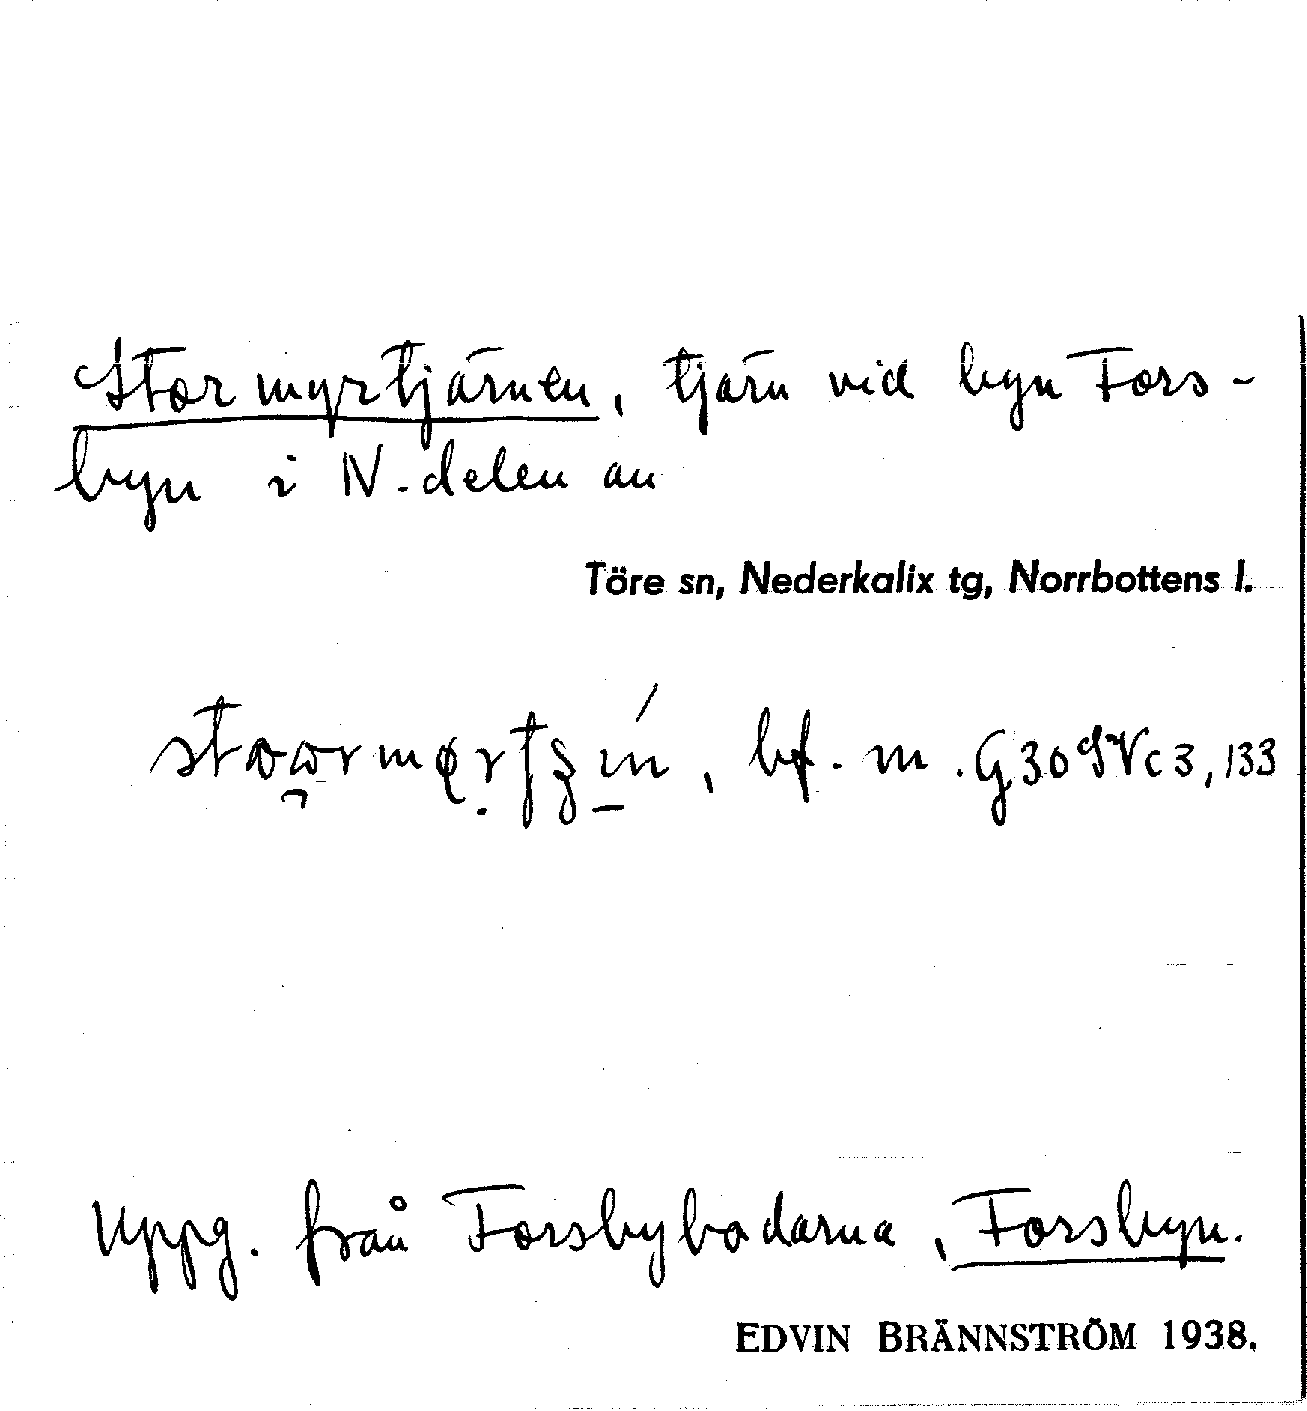 Stormyrtjärnen, tjärn vid byn Fors-
byn i N.delen av
Töre sn, Nederkalix tg, Norrbottens l.
bf. m.
Uppg. från Forsbybodarna, Forsbyn.
EDVIN BRÄNNSTRÖM 1938.